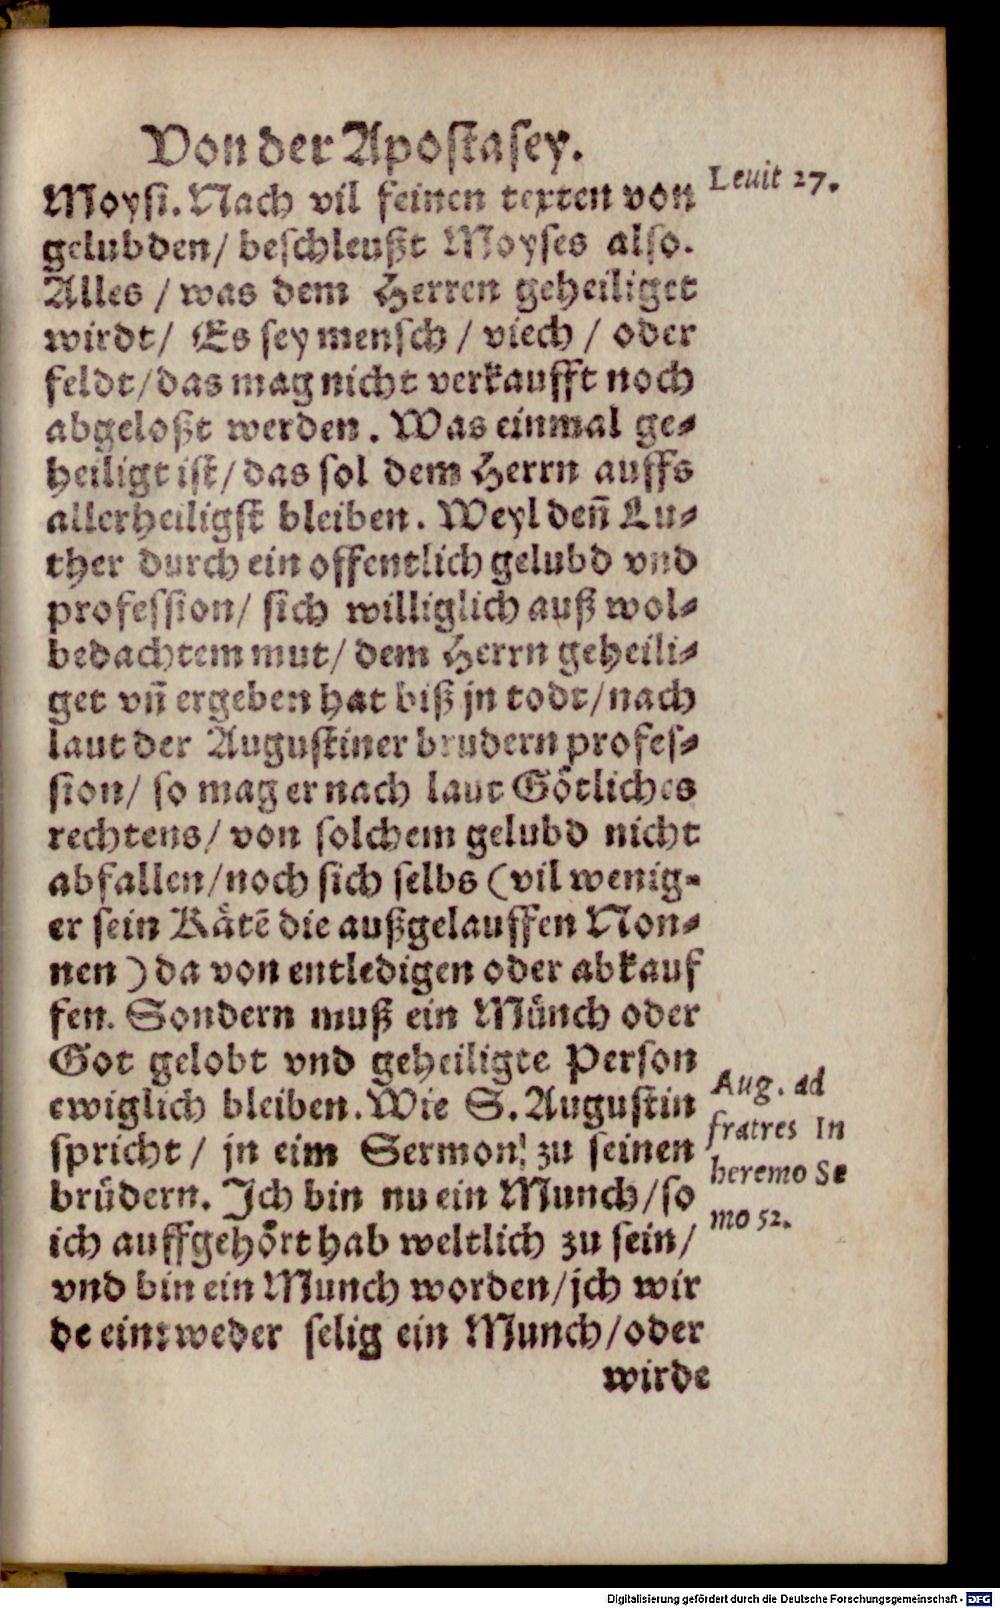 Von der Apostasey.
Moysi. Nach vil feinen texten von
Leuit 27.
gelubden/ beschleußt Moyses also.
Alles / was dem Herren geheiliget
wirdt/ Es sey mensch / viech / oder
feldt/das mag nicht verkaufft noch
abgeloßt werden. Was einmal ge⸗
heiligt ist/ das sol dem Herrn auffs
allerheiligst bleiben. Weyl deñ Lu⸗
ther durch ein offentlich gelubd vnd
profession/ sich williglich auß wol⸗
bedachtem mut/ dem Herrn geheili⸗
get vñ ergeben hat biß jn todt/nach
laut der Augustiner brudern profes⸗
sion/ so mag er nach laut Götliches
rechtens/ von solchem gelubd nicht
abfallen/noch sich selbs (vil wenig⸗
er sein Kåtē die außgelauffen Non⸗
nen ) da von entledigen oder abkauf
fen. Sondern muß ein Münch oder
Got gelobt vnd geheiligte Person
ewiglich bleiben. Wie S. Augustin
spricht / jn eim Sermon/ zu seinen
brüdern. Ich bin nu ein Munch/so
ich auffgehört hab weltlich zu sein/
vnd bin ein Munch worden/jch wir
de eintweder selig ein Munch/oder
wirde
Aug. ad
fratres In
heremo Se
mo 52.
Digitalisierung gefördert durch die Deutsche Forschungsgemeinschaft - DFG